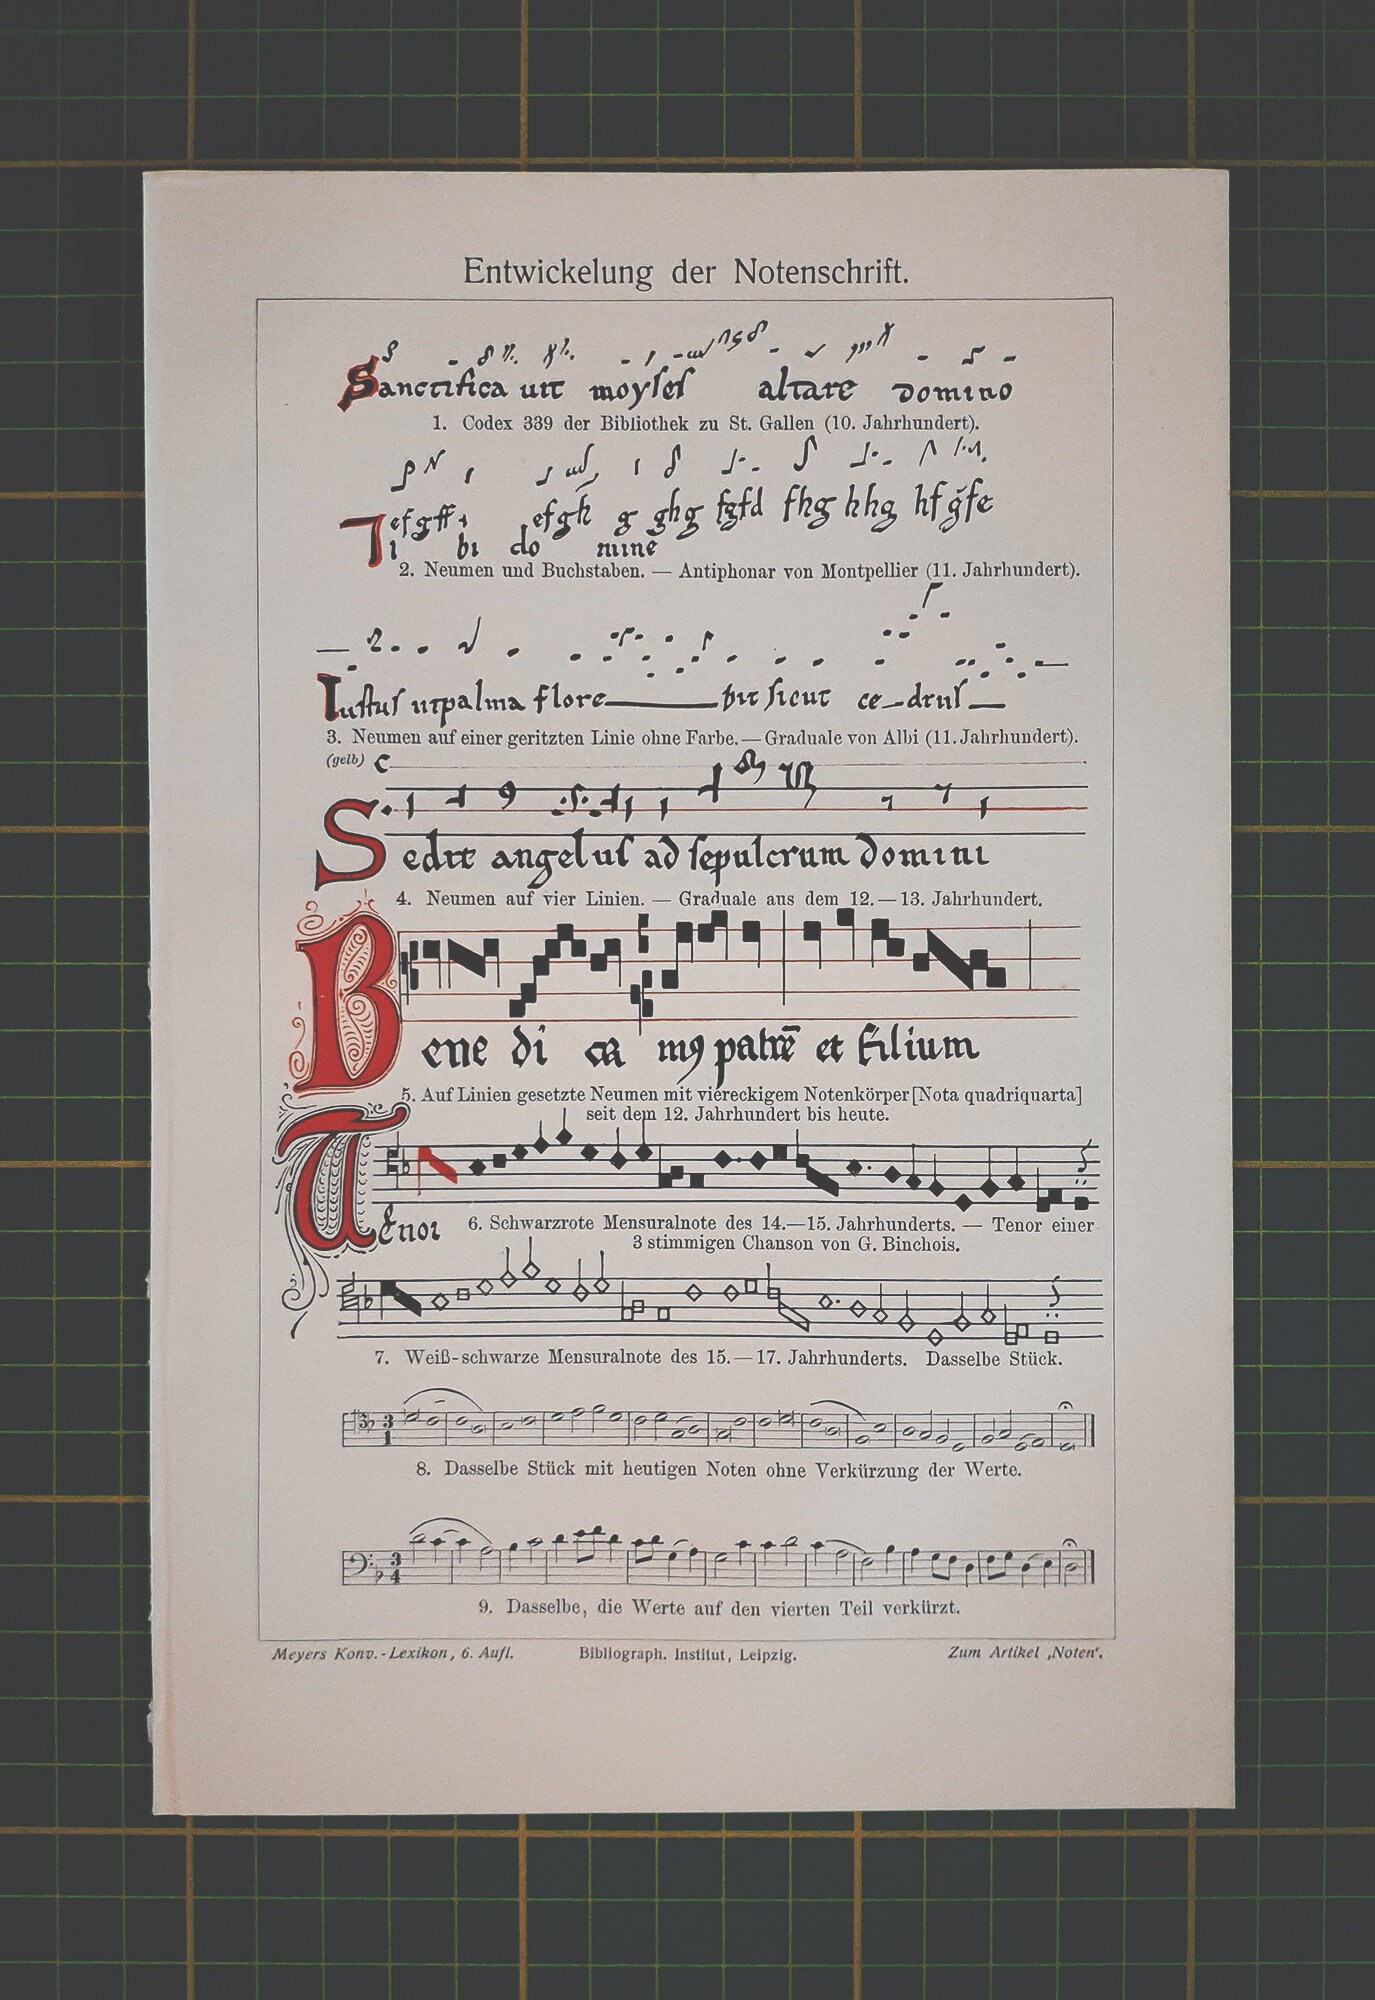 Entwickelung der Notenschrift.
Sanctifica uit moyses altare domino
1. Codex 339 der Bibliothek zu St. Gallen (10. Jahrhundert).
efgff efgh g ghg fgfd fhg hhg hfgfe
Ti bi do mine
2. Neumen und Buchstaben. — Antiphonar von Montpellier (11. Jahrhundert).
Iustus ut palma flore bit sicut ce-drus
3. Neumen auf einer geritzten Linie ohne Farbe. — Graduale von Albi (11. Jahrhundert).
(gelb) C
Sedit angelus ad sepulcrum domini
4. Neumen auf vier Linien. — Graduale aus dem 12.—13. Jahrhundert.
Bene di ca mꝰ patrē et filium
5. Auf Linien gesetzte Neumen mit viereckigem Notenkörper [Nota quadriquarta]
seit dem 12. Jahrhundert bis heute.
Tenor
6. Schwarzrote Mensuralnote des 14.—15. Jahrhunderts. — Tenor einer
3 stimmigen Chanson von G. Binchois.
7. Weiß-schwarze Mensuralnote des 15.—17. Jahrhunderts. Dasselbe Stück.
3
1
8. Dasselbe Stück mit heutigen Noten ohne Verkürzung der Werte.
3
4
9. Dasselbe, die Werte auf den vierten Teil verkürzt.
Meyers Konv.-Lexikon, 6. Aufl. Bibliograph. Institut, Leipzig. Zum Artikel ‚Noten‘.